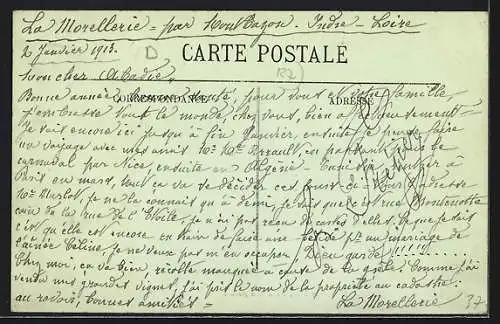 La Morellerie = par Montbazon. Indre - Loire
2 Janvier 1913.
D
CARTE POSTALE
R2
Mon cher Abadie,
CORRESPONDANCE
ADRESSE
Bonne année, bonne santé, pour vous et votre famille
j'embrasse tout le monde, chez vous, bien affectueusement
Je suis encore ici jusqu'à fin Janvier, ensuite je pense faire
un voyage avec mes amis Mr Mme Perrault, ici partant
carnaval par Nice ensuite en Algérie - Tunisie, rentrer à
Paris en mars, tout ça va se décider ces jours-ci. L'adresse
Mme Marlot, je ne la connais qu'à demi, je sais que c'est rue
coin de la rue de l'Etoile, je n'ai pas reçu de cartes d'elles. Ce que je sais
c'est qu'elle est encore en train de faire une pr un mariage de
l'ainée Céline, je ne veux pas m'en occuper. Dieu garde !!!!!
Chez moi, ça va bien, récolte manquée à cause de la grêle! Comme j'ai
vendu mes grandes vignes, j'ai pris le nom de la propriété au cadastre:
au revoir, bonnes amitiés -
La Morellerie
37